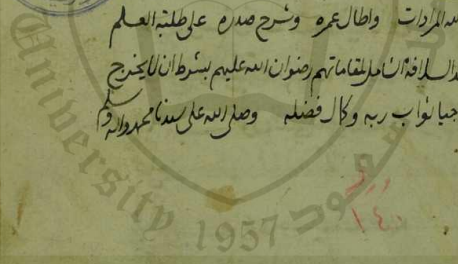 المرادات واطال عمره وشرح صدره على طلبة العلم
الشامل لمقاماتهم رضوان الله عليهم بشرط ان لا يخرج
ثواب ربه وكمال فضله وصلى الله على سيدنا محمد واله وسلم
١٤٠
University
1957